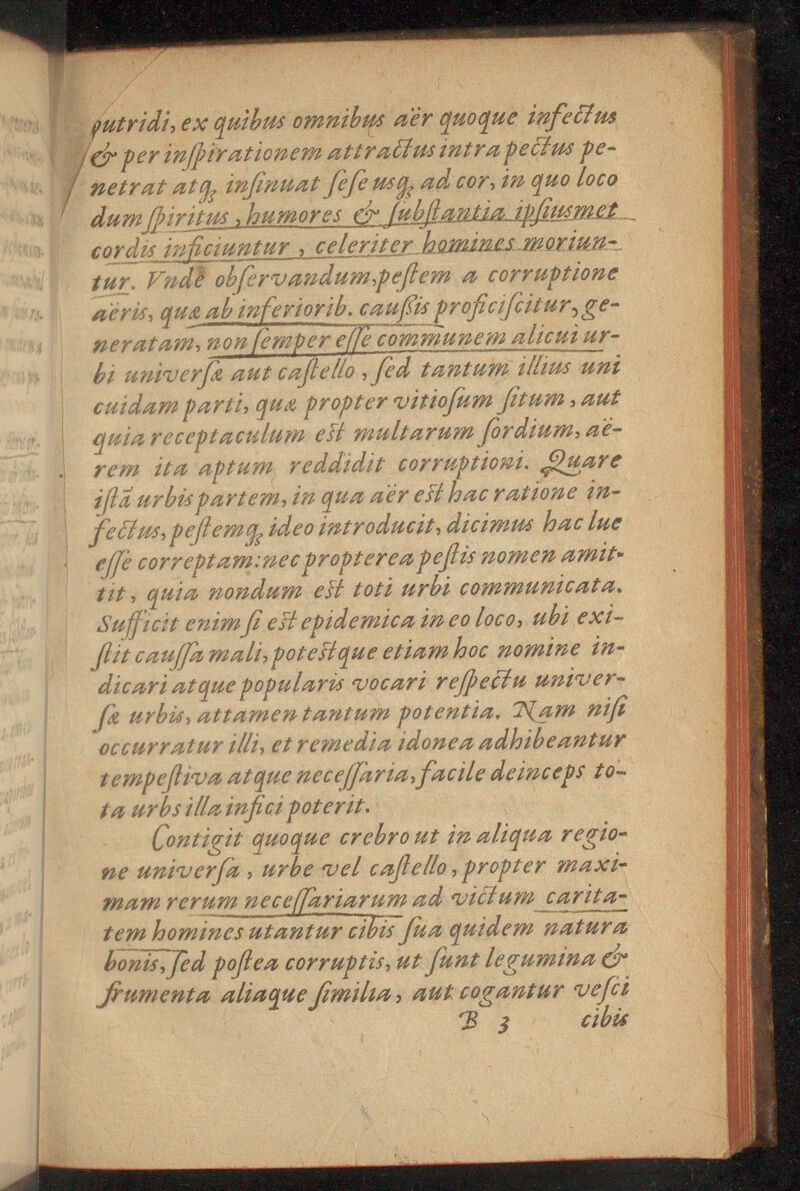 putridi, ex quibus omnibus aër quoque infectus
& per inſpirationem attractus intra pectus pe-
netrat atq; inſinuat ſeſe usq; ad cor, in quo loco
dum ſpiritus, humores & ſubſtantia ipſiusmet
cordis inficiuntur, celeriter homines moriun-
tur. Vndè obſervandum, peſtem a corruptione
aëris, quæ ab inferiorib. cauſſis proficiſcitur, ge-
neratam, non ſemper eſſe communem alicui ur-
bi univerſæ aut caſtello, ſed tantum illius uni
cuidam parti, quæ propter vitioſum ſitum, aut
quia receptaculum est multarum ſordium, aë-
rem ita aptum reddidit corruptioni. Quare
iſtā urbis partem, in qua aër est hac ratione in-
fectus, peſtemq; ideo introducit, dicimus hac lue
eſſe correptam: nec propterea peſtis nomen amit-
tit, quia nondum est toti urbi communicata.
Sufficit enim ſi est epidemica in eo loco, ubi exi-
ſtit cauſſa mali, potestque etiam hoc nomine in-
dicari atque popularis vocari reſpectu univer-
ſæ urbis, attamen tantum potentia. Nam niſi
occurratur illi, et remedia idonea adhibeantur
tempeſtiva atque neceſſaria, facile deinceps to-
ta urbs illa infici poterit.
Contigit quoque crebro ut in aliqua regio-
ne univerſa, urbe vel caſtello, propter maxi-
mam rerum neceſſariarum ad victum carita-
tem homines utantur cibis ſua quidem natura
bonis, ſed poſtea corruptis, ut ſunt legumina &
frumenta aliaque ſimilia, aut cogantur veſci
B 3 cibis